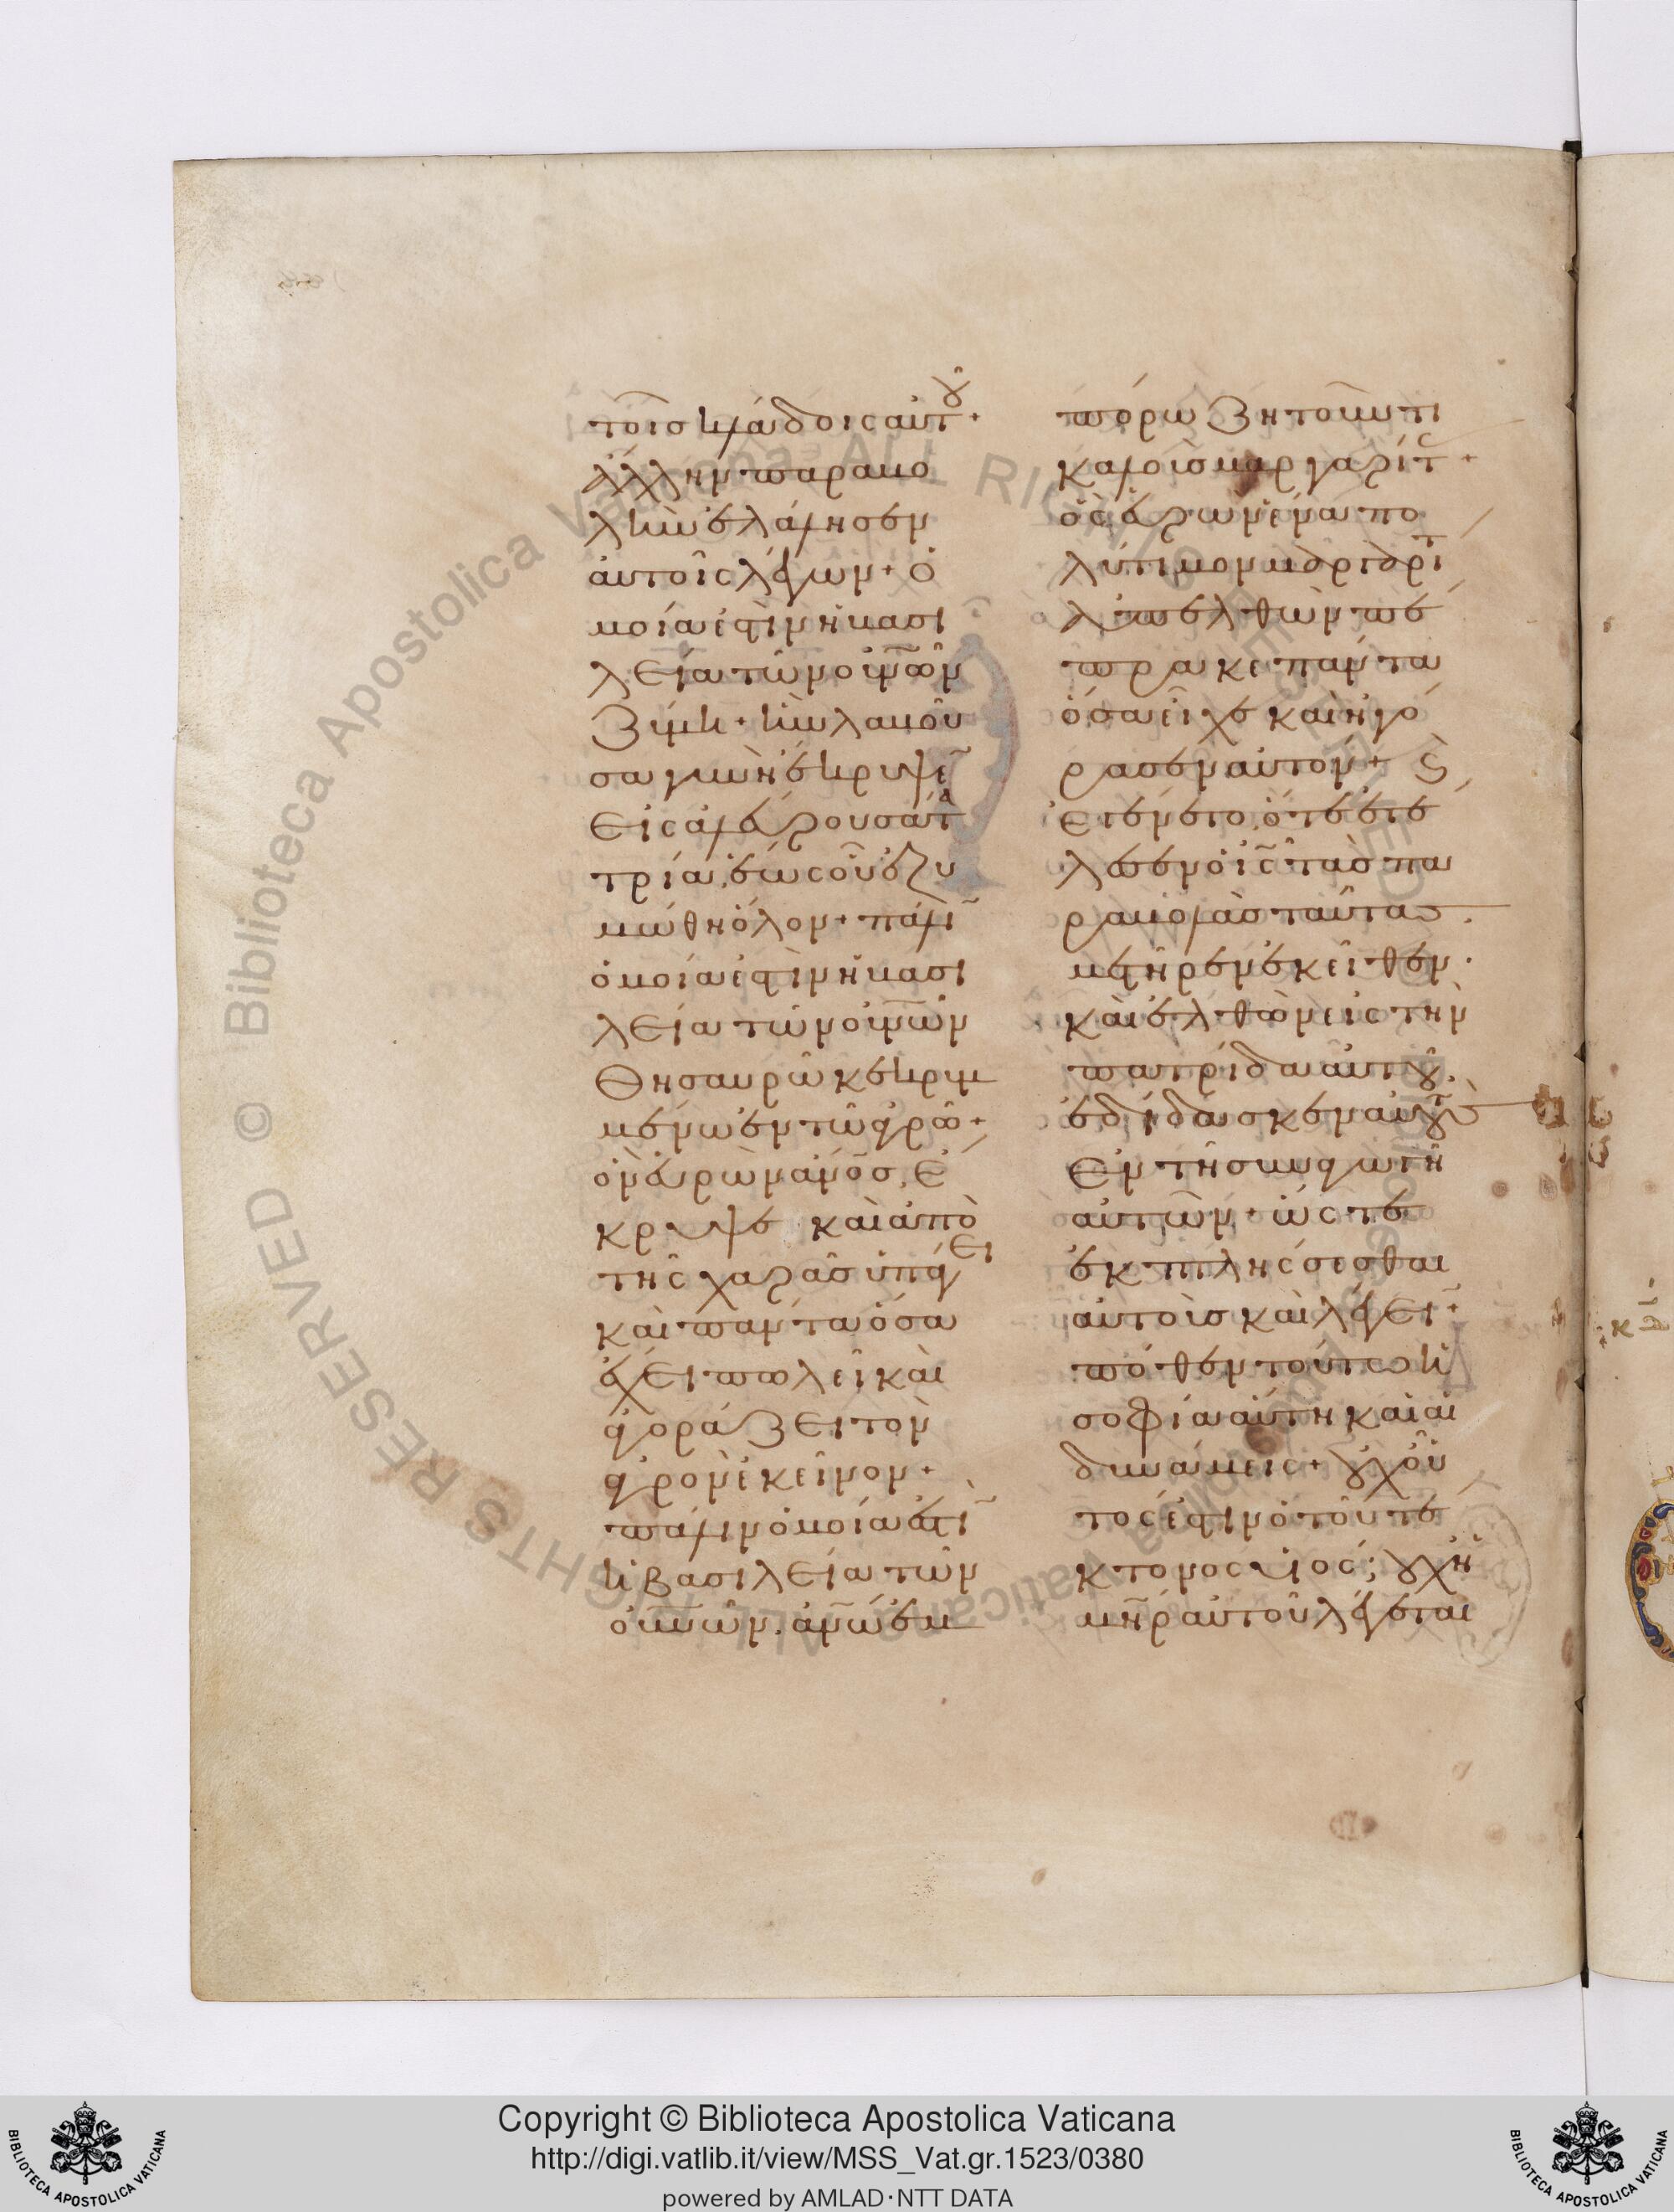 τοῖς κλάδοις αὐτοῦ +
Ἄλλην παραβο
λὴν ἐλάλησεν
αὐτοῖς λέγων + Ὁ
μοία ἐστὶν ἡ βασι
λεία τῶν οὐνῶν
Ζύμη + ἣν λαβοῦ
σα γυνὴ ἔκρυψε̄
Εἰς ἀλεύρου σάτα
τρία, ἕως οὗ ἐζυ
μώθη ὅλον + πάλῑ
ὁμοία ἐστὶν ἡ βασι
λεία τῶν οὐνῶν
Θησαυρῶ κεκρυμ
μένω ἐν τῶ ἀγρῶ +
ὃν εὑρὼν ἄνος, ἔ
κρυψε καὶ ἀπὸ
τῆς χαρᾶς ὑπάγει
καὶ πάντα ὅσα
ἔχει πωλεῖ καὶ
ἀγοράζει τὸν
ἀγρὸν ἐκεῖνον +
πάλιν ὁμοία ἐστῑ
ἡ βασιλεία τῶν
οὐνῶν. ἀνω ἐμ
πόρω ζητοῦντι
καλοὺς μαργαρίτας +
ὃς εὑρὼν ἕνα πο
λύτιμον μαργαρί
την ἀπελθὼν πέ
πρακε πάντα
ὅσα εἶχε καὶ ἠγό
ρασεν αὐτόν + Καὶ
ἐγένετο, ὅτε ἐτέ
λεσεν ὁ ις τὰς πα
ραβολὰς ταύτας.
μετῆρεν ἐκεῖθεν.
καὶ ἐλθὼν εἰς τὴν
πατρίδα αὐτοῦ.
ἐδίδασκεν αὐτοὺς
Ἐν τῆ συναγωγῆ
αὐτῶν + ὥστε
ἐκπλήσσεσθαι
αὐτοὺς καὶ λέγειν +
πόθεν τούτω ἡ
σοφία αὕτη καὶ αἱ
δυνάμεις + οὐχ οὗ
τός ἐστιν ὁ τοῦ τέ
κτονος υἱός; οὐχὶ ἡ
μηρ αὐτοῦ λέγεται
Copyright © Biblioteca Apostolica Vaticana
http://digi.vatlib.it/view/MSS_Vat.gr.1523/0380
powered by AMLAD·NTT DATA
BIBLIOTECA APOSTOLICA VATICANA
BIBLIOTECA APOSTOLICA VATICANA